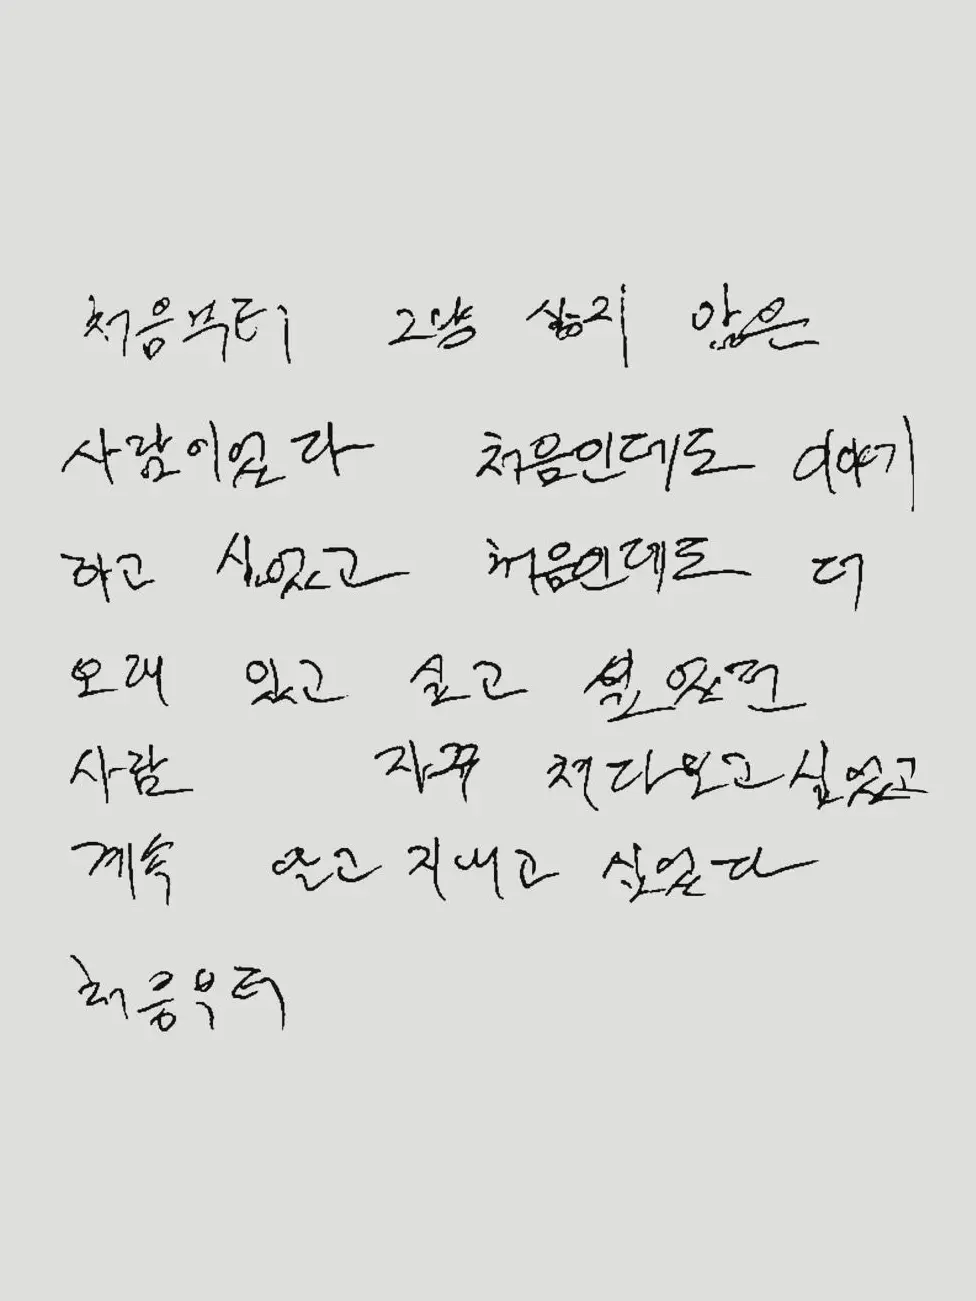 처음부터 그냥 싫지 않은
사람이었다 처음인데도 이야기
하고 싶었고 처음인데도 더
오래 있고 싶고 싶었던
사람 자꾸 쳐다보고 싶었고
계속 알고 지내고 싶었다
처음부터